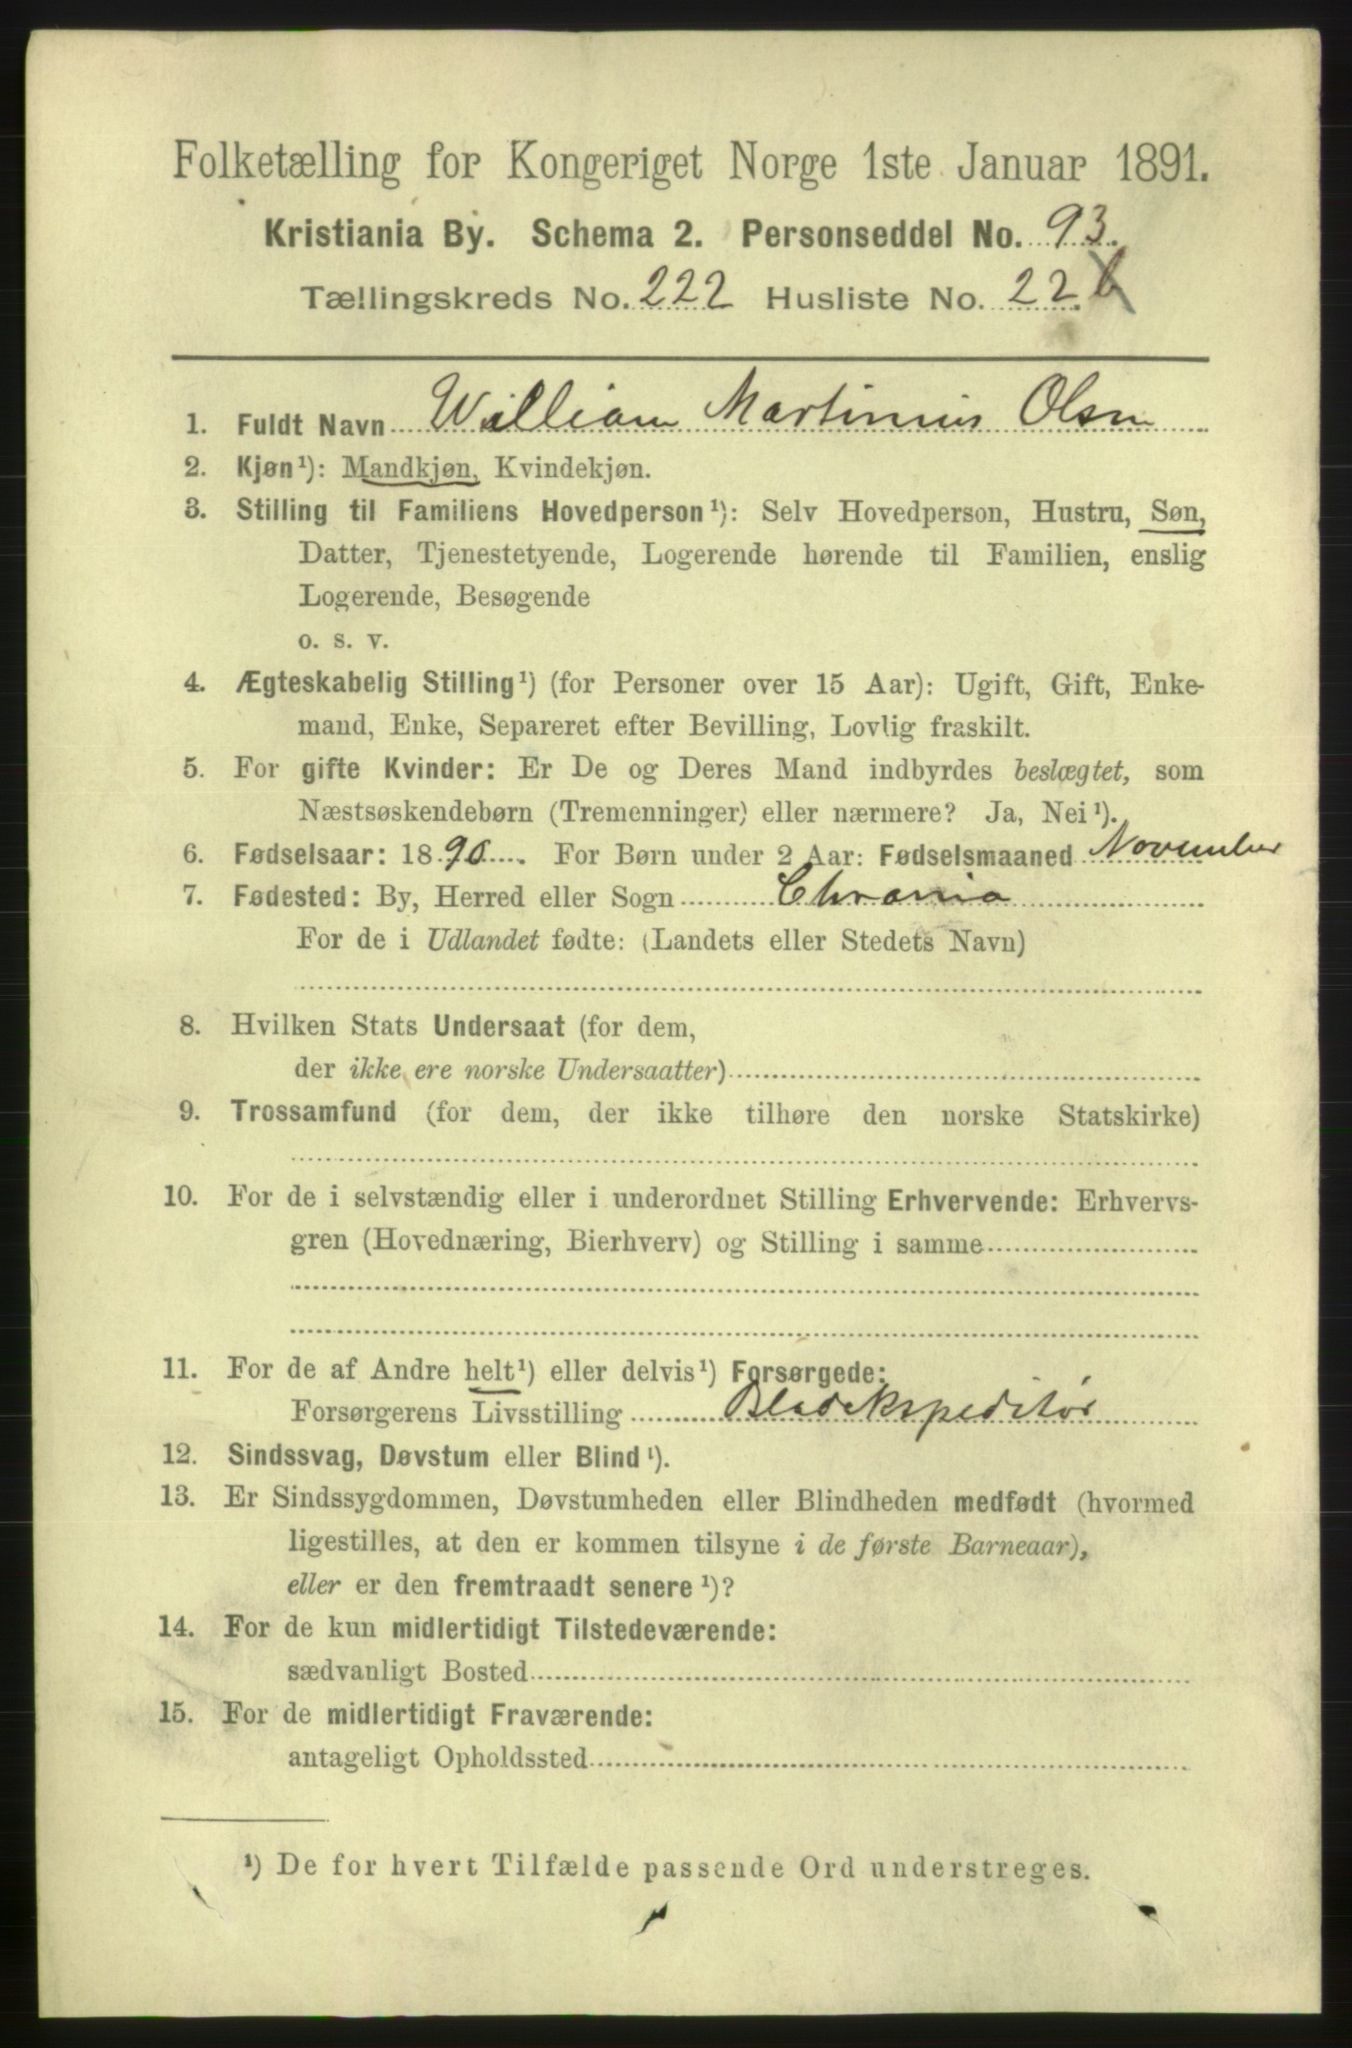 Folketælling for Kongeriget Norge 1ste Januar 1891.
Kristiania By. Schema 2. Personseddel No. 93.
Tællingskreds No. 222 Husliste No. 22. b
1. Fuldt Navn William Martinius Olsen
2. Kjøn¹): Mandkjøn, Kvindekjøn.
3. Stilling til Familiens Hovedperson¹): Selv Hovedperson, Hustru, Søn,
Datter, Tjenestetyende, Logerende hørende til Familien, enslig
Logerende, Besøgende
o. s. v.
4. Ægteskabelig Stilling¹) (for Personer over 15 Aar): Ugift, Gift, Enke-
mand, Enke, Separeret efter Bevilling, Lovlig fraskilt.
5. For gifte Kvinder: Er De og Deres Mand indbyrdes beslægtet, som
Næstsøskendebørn (Tremenninger) eller nærmere? Ja, Nei¹).
6. Fødselsaar: 1890. For Børn under 2 Aar: Fødselsmaaned November
7. Fødested: By, Herred eller Sogn Chrania
For de i Udlandet fødte: (Landets eller Stedets Navn)
8. Hvilken Stats Undersaat (for dem,
der ikke ere norske Undersaatter)
9. Trossamfund (for dem, der ikke tilhøre den norske Statskirke)
10. For de i selvstændig eller i underordnet Stilling Erhvervende: Erhvervs-
gren (Hovednæring, Bierhverv) og Stilling i samme
11. For de af Andre helt¹) eller delvis¹) Forsørgede:
Forsørgerens Livsstilling Bladekspeditør
12. Sindssvag, Døvstum eller Blind¹).
13. Er Sindssygdommen, Døvstumheden eller Blindheden medfødt (hvormed
ligestilles, at den er kommen tilsyne i de første Barneaar),
eller er den fremtraadt senere¹)?
14. For de kun midlertidigt Tilstedeværende:
sædvanligt Bosted
15. For de midlertidigt Fraværende:
antageligt Opholdssted
¹) De for hvert Tilfælde passende Ord understreges.